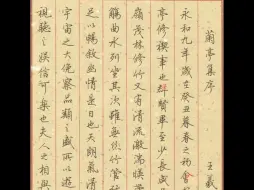 蘭亭集序
王羲
永和九年歲在癸丑暮春之初會
亭修稧事也群賢畢至少長咸
嶺茂林修竹又有清流激湍映
觴曲水列坐其次雖無絲竹管
足以暢敘幽情是日也天朗氣清
宇宙之大俯察品類之盛所以遊
視聽之娛信可樂也夫人之相與